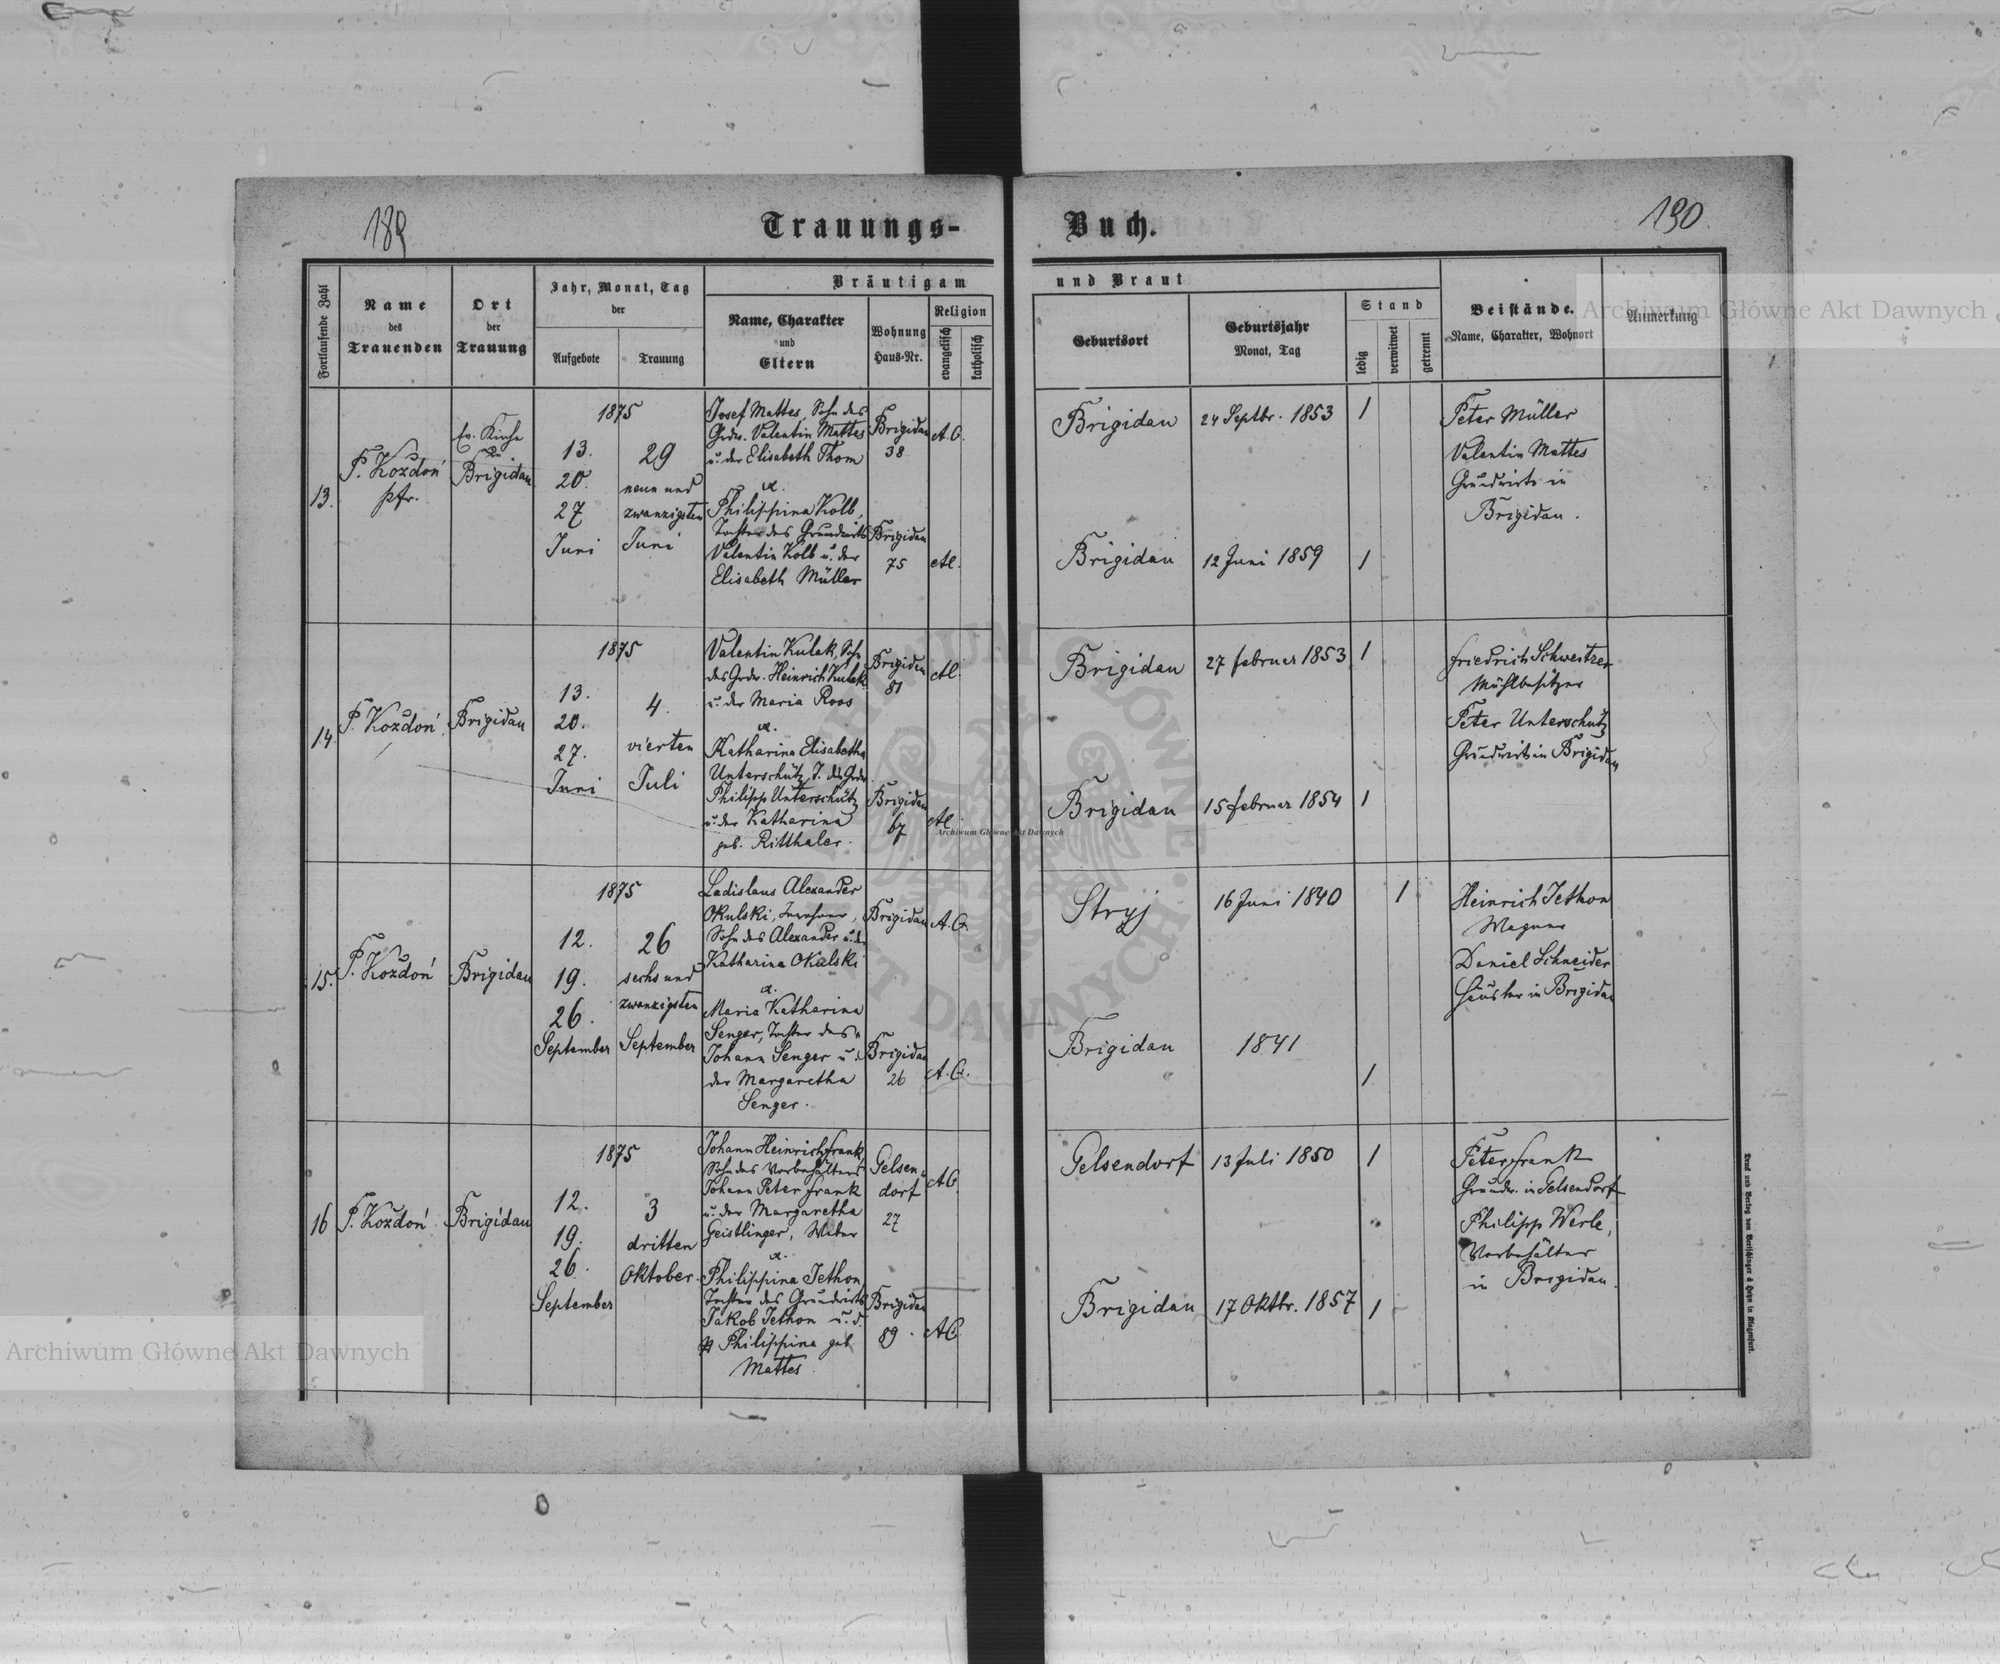 189
Trauungs-
Buch.
190
Fortlaufende Zahl
Name
des
Trauenden
Ort
der
Trauung
Jahr, Monat, Tag
der
Aufgebote
Trauung
Bräutigam
Name, Charakter
und
Eltern
Wohnung
Haus-Nr.
Religion
evangelisch
katholisch
und Braut
Geburtsort
Geburtsjahr
Monat, Tag
Stand
ledig
verwitwet
getrennt
Beistände.
Name, Charakter, Wohnort
Anmerkung
13.
P. Kozdoń
pfr.
Ev. Kirche
zu
Brigidau
1875
13.
20.
27
Juni
29
neun und
zwanzigsten
Juni
Josef Mattes, Sohn des
Grdw. Valentin Mattes
u. der Elisabeth Thom
u.
Philippina Kolb,
Tochter des Grundwirts
Valentin Kolb u. der
Elisabeth Müller
Brigidau
38
Brigidau
75
A.C.
AC.
Brigidau
24 Septbr. 1853
1
Brigidau
12 Juni 1859
1
Peter Müller
Valentin Mattes
Grundwirte in
Brigidau.
14.
P. Kozdoń
Brigidau
1875
13.
20.
27.
Juni
4.
vierten
Juli
Valentin Kulak, Sohn
des Grdw. Heinrich Kulak
u. der Maria Roos
u.
Katharina Elisabetha
Unterschütz, T. des Grdw.
Philipp Unterschütz
u. der Katharina
geb. Ritthaler.
Brigidau
81
Brigidau
67
AC.
AC.
Brigidau
27 Februar 1853
1
Brigidau
15 Februar 1854
1
Friedrich Schweitzer
Mühlbesitzer
Peter Unterschütz
Grundwirt in Brigidau
15.
P. Kozdoń
Brigidau
1875
12.
19.
26.
September
26
sechs und
zwanzigsten
September
Ladislaus Alexander
Okulski, Inwohner,
Sohn des Alexander u. der
Katharina Okulski
u.
Maria Katharina
Senger, Tochter des
Johann Senger u.
der Margaretha
Senger.
Brigidau
Brigidau
26
A.C.
A.C.
Stryj
16 Juni 1840
1
Brigidau
1841
1
Heinrich Jethon
Wagner
Daniel Schneider
Häusler in Brigidau
16
P. Kozdoń
Brigidau
1875
12.
19.
26.
September
3
dritten
Oktober.
Johann Heinrich Frank,
Sohn des Vorbehälters
Johann Peter Frank
u. der Margaretha
Geistlinger, Weber
u.
Philippina Jethon,
Tochter des Grundwirts
Jakob Jethon u. d.
Philippina geb.
Mattes.
Gelsen-
dorf
27
Brigidau
89.
AC.
AC.
Gelsendorf
13 Juli 1850
1
Brigidau
17 Oktbr. 1857
1
Peter Frank
Grundw. in Gelsendorf
Philipp Werle,
Vorbehälter
in Brigidau.
Druck und Verlag von Bertschinger & Heyn in Klagenfurt.
Archiwum Główne Akt Dawnych
Archiwum Główne Akt Dawnych
Archiwum Główne Akt Dawnych
ARCHIWUM GŁÓWNE AKT DAWNYCH